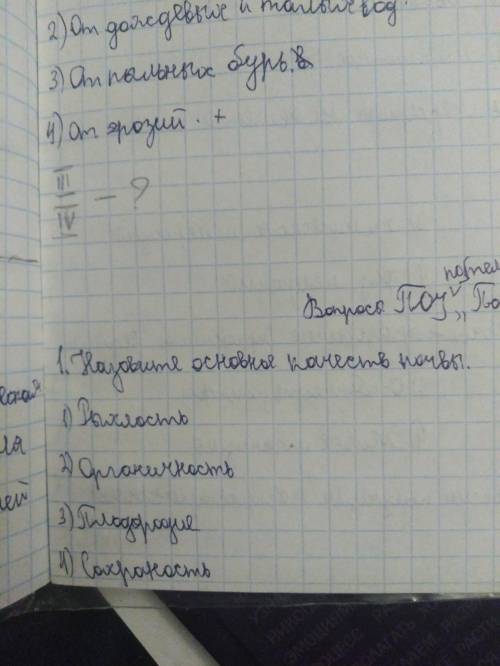 2) От дождевых и талых вод.
3) От пыльных бурь.
4) От эрозий. +
III
IV - ?
Вопросы ПОУ
1. Назовите основное качеств почвы.
1) Рыхлость
2) Органичность
3) Плодородие
4) Сохраность